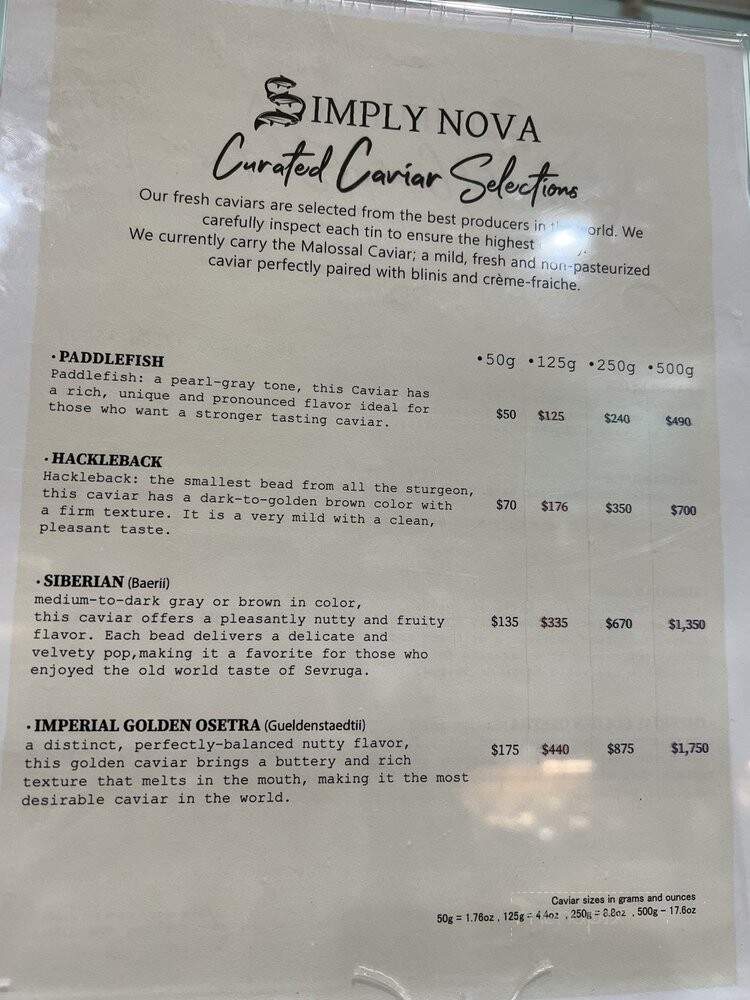 SIMPLY NOVA
Curated Caviar Selections
Our fresh caviars are selected from the best producers in orld. We
carefully inspect each tin to ensure the highest
We currently carry the Malossal Caviar; a mild, fresh and non-pasteurized
caviar perfectly paired with blinis and crème-fraiche.
•50g •125g •250g •500g
• PADDLEFISH
Paddlefish: a pearl-gray tone, this Caviar has
a rich, unique and pronounced flavor ideal for
those who want a stronger tasting caviar.
$50 $125 $240 $490
• HACKLEBACK
Hackleback: the smallest bead from all the sturgeon,
this caviar has a dark-to-golden brown color with
a firm texture. It is a very mild with a clean,
pleasant taste.
$70 $176 $350 $700
• SIBERIAN (Baerii)
medium-to-dark gray or brown in color,
this caviar offers a pleasantly nutty and fruity
flavor. Each bead delivers a delicate and
velvety pop,making it a favorite for those who
enjoyed the old world taste of Sevruga.
$135 $335 $670 $1,350
• IMPERIAL GOLDEN OSETRA (Gueldenstaedtii)
a distinct, perfectly-balanced nutty flavor,
this golden caviar brings a buttery and rich
texture that melts in the mouth, making it the most
desirable caviar in the world.
$175 $440 $875 $1,750
Caviar sizes in grams and ounces
50g = 1.76oz , 125g = 4.4oz , 250g = 8.8oz , 500g - 17.6oz